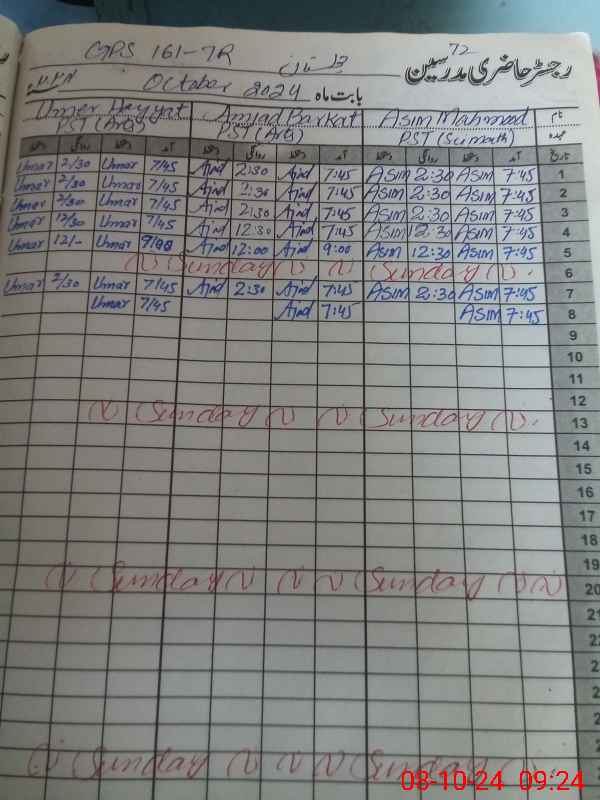 72
GPS 161-7R
رجسٹر حاضری مدرسین
October 2024 بابت ماہ
Umer Hayyat Amjad Barkat Asim Mahmood نام
PST (Arts) PST (Arts) PST (Sci math) عہدہ
دستخط روانگی دستخط آمد دستخط روانگی دستخط آمد دستخط روانگی دستخط آمد تاریخ
Umar 2/30 Umar 7/45 Ajad 2:30 Ajad 7:45 ASIM 2:30 ASIM 7:45 1
Umar 2/30 Umar 7/45 Ajad 2:30 Ajad 7:45 ASIM 2:30 ASIM 7:45 2
Umar 2/30 Umar 7/45 Ajad 2:30 Ajad 7:45 ASIM 2:30 ASIM 7:45 3
Umar 12/30 Umar 7/45 Ajad 12:30 Ajad 7:45 ASIM 12:30 ASIM 7:45 4
Umar 12/- Umar 9/00 Ajad 12:00 Ajad 9:00 ASIM 12:30 ASIM 7:45 5
Sunday Sunday 6
Umar 2/30 Umar 7/45 Ajad 2:30 Ajad 7:45 ASIM 2:30 ASIM 7:45 7
Umar 7/45 Ajad 7:45 ASIM 7:45 8
9
10
11
12
Sunday Sunday 13
14
15
16
17
18
19
Sunday Sunday 20
21
22
Sunday Sunday
08-10-24 09:24